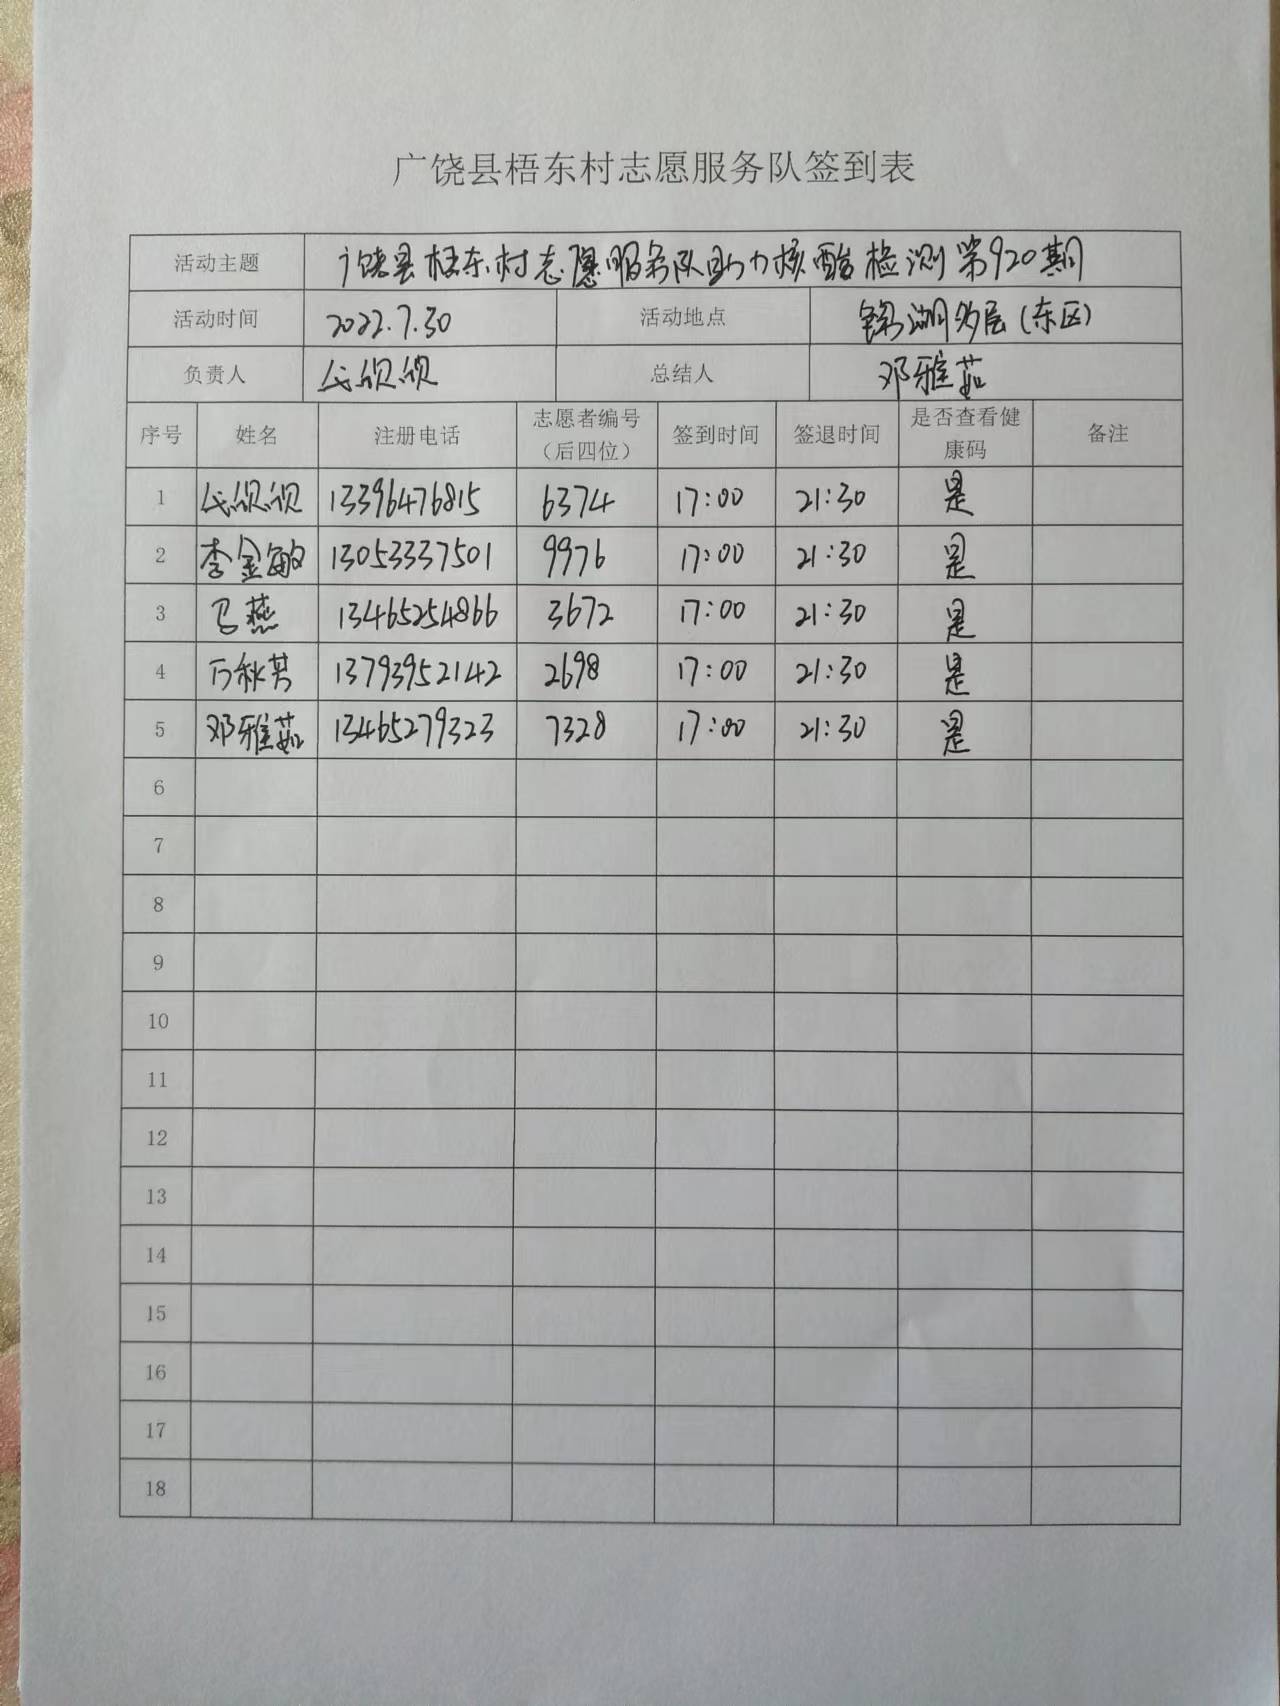 广饶县梧东村志愿服务队签到表
活动主题 广饶县梧东村志愿服务队助力核酸检测第920期
活动时间 2022.7.30 活动地点 锦湖多层(东区)
负责人 总结人 邓雅茹
序号 姓名 注册电话 志愿者编号（后四位） 签到时间 签退时间 是否查看健康码 备注
1 13396476815 6374 17:00 21:30 是
2 李金敏 13053337501 9976 17:00 21:30 是
3 马燕 13465254866 3672 17:00 21:30 是
4 万秋芳 13793952142 2698 17:00 21:30 是
5 邓雅茹 13465279323 7328 17:00 21:30 是
6
7
8
9
10
11
12
13
14
15
16
17
18